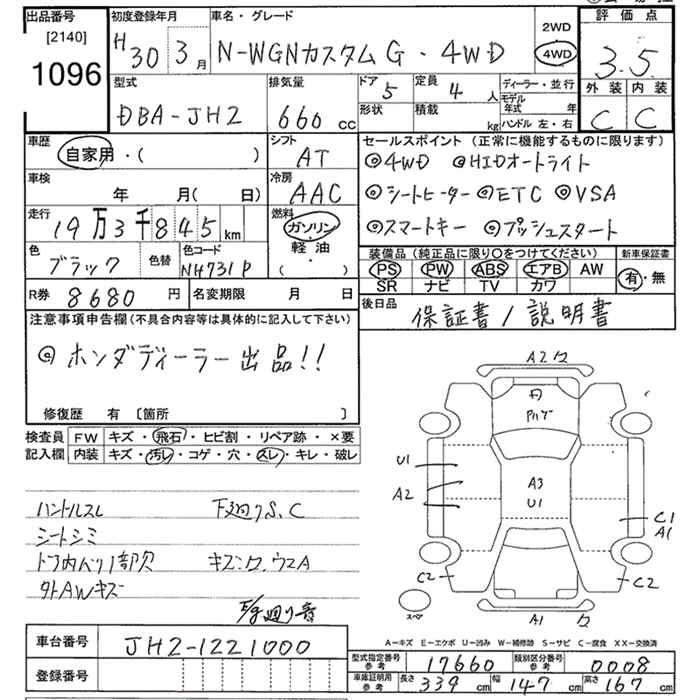 出品番号 初度登録年月 車名・グレード 評価点
[2140] 1096
H30 3月 N-WGNカスタムG・4WD 2WD 4WD 3.5
型式 排気量 ドア 5 定員 4人 ディーラー・並行 外装 内装
DBA-JH2 660cc 形状 積載 kg モデル年式 年 C C
ハンドル 左・右
車歴 シフト セールスポイント(正常に機能するものに限ります)
自家用・( ) AT ◎4WD ◎HIDオートライト
車検 冷房
年 月(日) AAC ◎シートヒーター ◎ETC ◎VSA
走行 燃料
19万3千845km ガソリン・軽油・( ) ◎スマートキー ◎プッシュスタート
色 色替 色コード 装備品(純正品に限り〇をつけてください) 新車保証書
ブラック NH731P PS PW ABS エアB AW 有・無
SR ナビ TV カワ
R券 8680円 名変期限 月 日 後日品 保証書/説明書
注意事項申告欄(不具合内容等は具体的に記入して下さい)
◎ホンダディーラー出品!!
修復歴 有 〔箇所 〕
検査員 FW キズ・飛石・ヒビ割・リペア跡・×要
記入欄 内装 キズ・汚レ・コゲ・穴・スレ・キレ・破レ
ハンドルスレ 下廻りS、C
シートシミ
外AWキズ
A2
A3
U1
U1
A2
C1
A1
C2
C2
A1
スペア
A-キズ E-エクボ U-凹み W-補修跡 S-サビ C-腐食 XX-交換済
車台番号 JH2-1221000
登録番号
型式指定番号 参考 17660 類別区分番号 参考 0008
車庫証明用 参考 長さ 339cm 幅 147cm 高さ 167cm